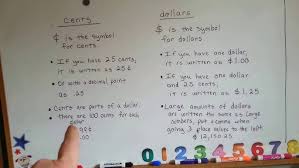 cents
¢ is the symbol
for cents.
• If you have 25 cents,
it is written as 25¢
• Or with a decimal point
as .25
• Cents are parts of a dollar.
• there are 100 cents for each
dollar
¢
.00
dollars
$ is the symbol
for dollars
• If you have one dollar,
it is written as $1.00
• If you have one dollar
and 25 cents, it
is written as $1.25
• Large amounts of dollars
are written the same as large
numbers, put a comma when
going 3 place values to the left
$ 12,150.25
0 1 2 3 4 5 6 7 8 9